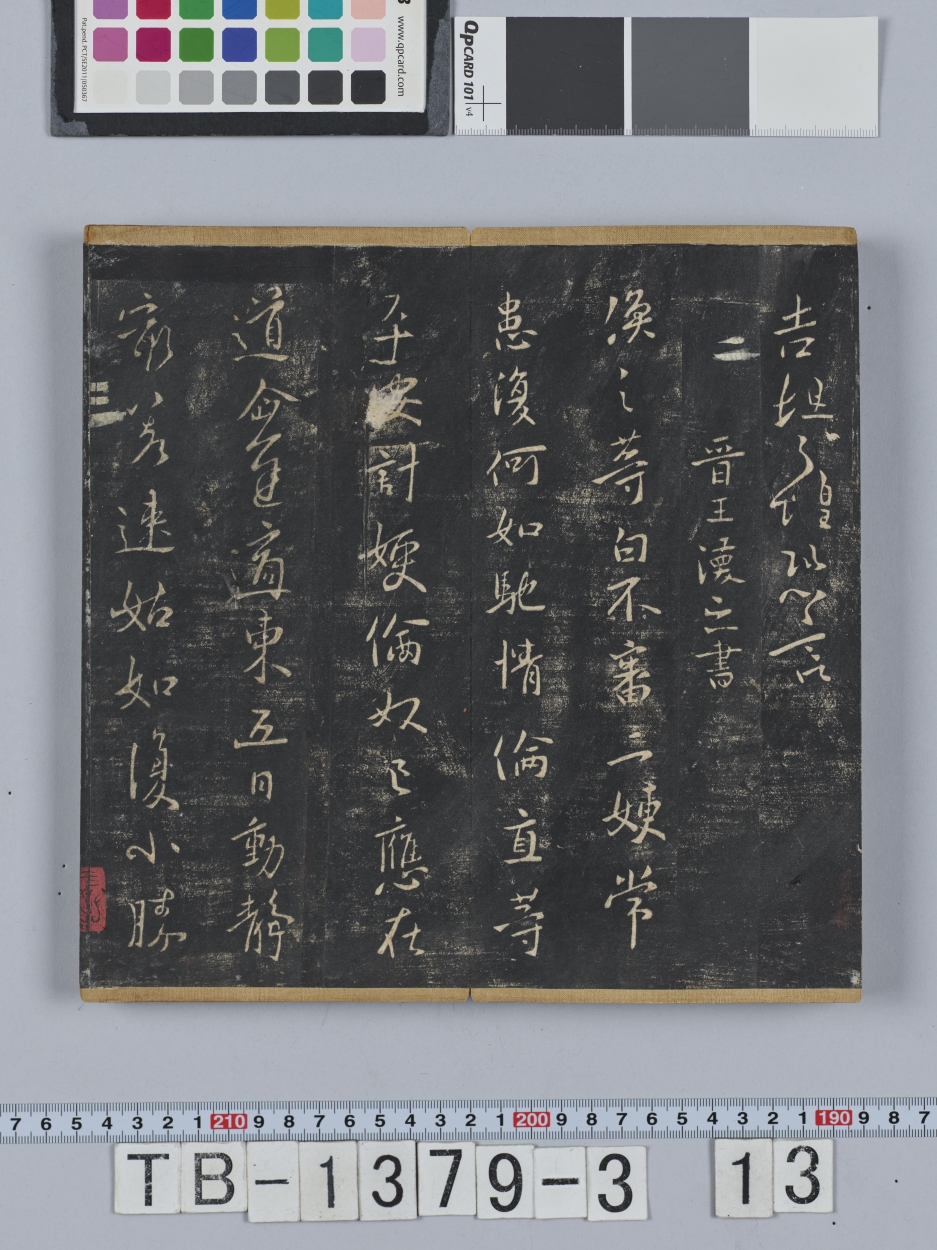 www.qpcard.com
Pat.pend. PCT/SE2011/050367
QPCARD 101 v4
坦之惶恐言
二
晉王渙之書
渙之等白不審二嫂常
患復何如馳情倫直等
平安計嫂倫奴已應在
道企遲適東五日動靜
三
速姑如復小勝
7 6 5 4 3 2 1 210 9 8 7 6 5 4 3 2 200 9 8 7 6 5 4 3 2 1 190 9 8 7
TB-1379-3 13